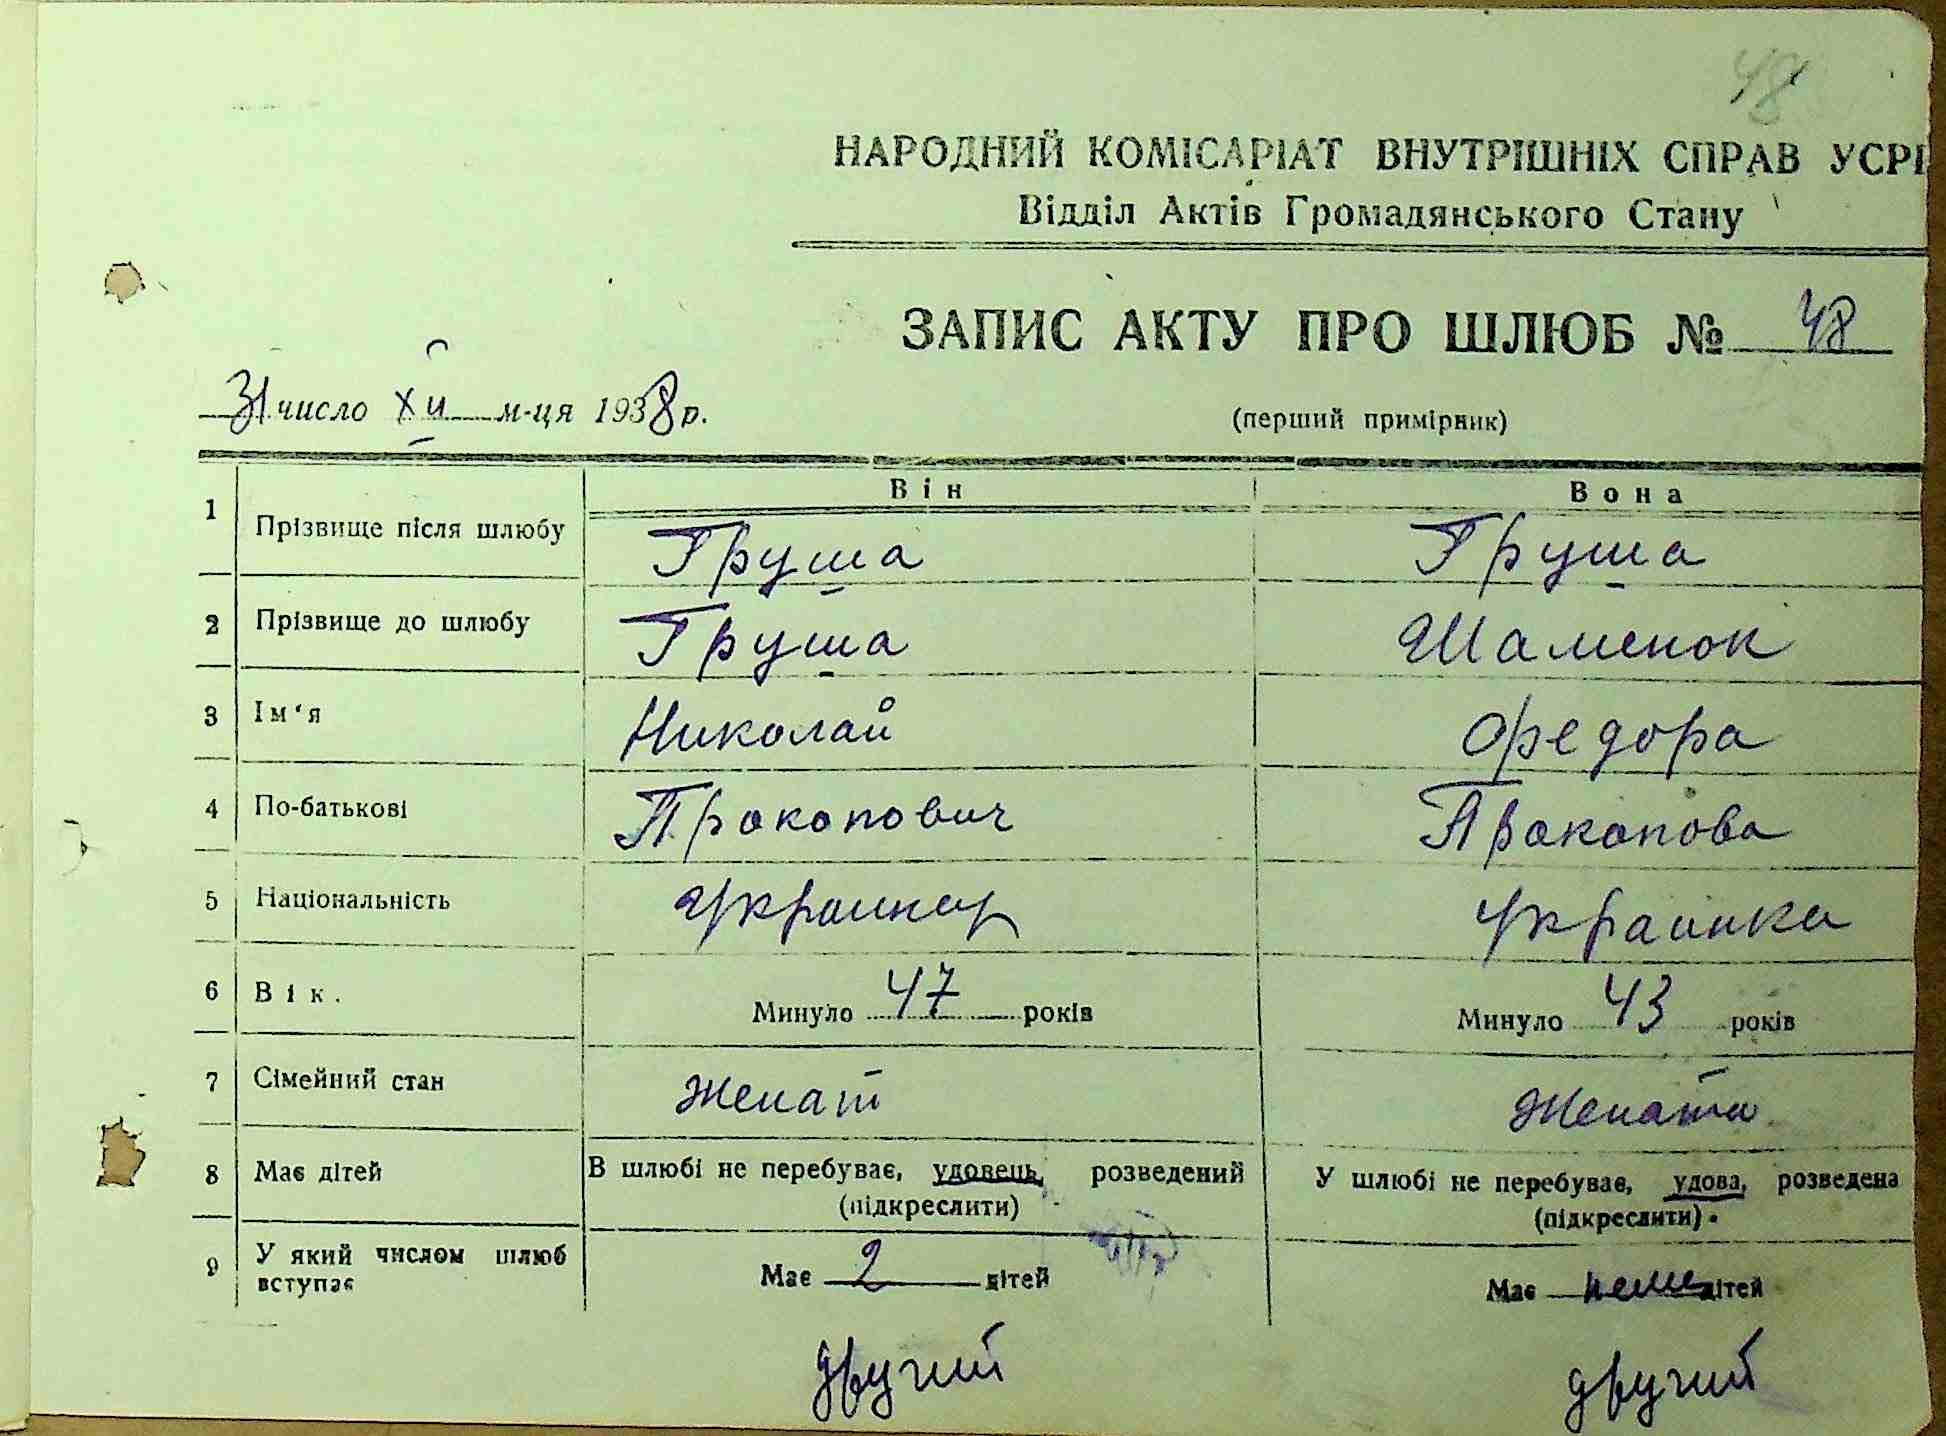 48
НАРОДНИЙ КОМІСАРІАТ ВНУТРІШНІХ СПРАВ УСРР
Відділ Актів Громадянського Стану
ЗАПИС АКТУ ПРО ШЛЮБ № 48
31 число XII м-ця 1938 р.
(перший примірник)
Він Вона
1 Прізвище після шлюбу Груша Груша
2 Прізвище до шлюбу Груша Шаменок
3 Ім'я Николай Федора
4 По-батькові Прокопович Прокопова
5 Національність Украинец Украинка
6 Вік. Минуло 47 років Минуло 43 років
7 Сімейний стан Женат Жената
8 Має дітей В шлюбі не перебуває, удовець, розведений У шлюбі не перебуває, удова, розведена
(підкреслити) (підкреслити)
9 У який числом шлюб вступає Має 2 дітей Має нема дітей
другий другий